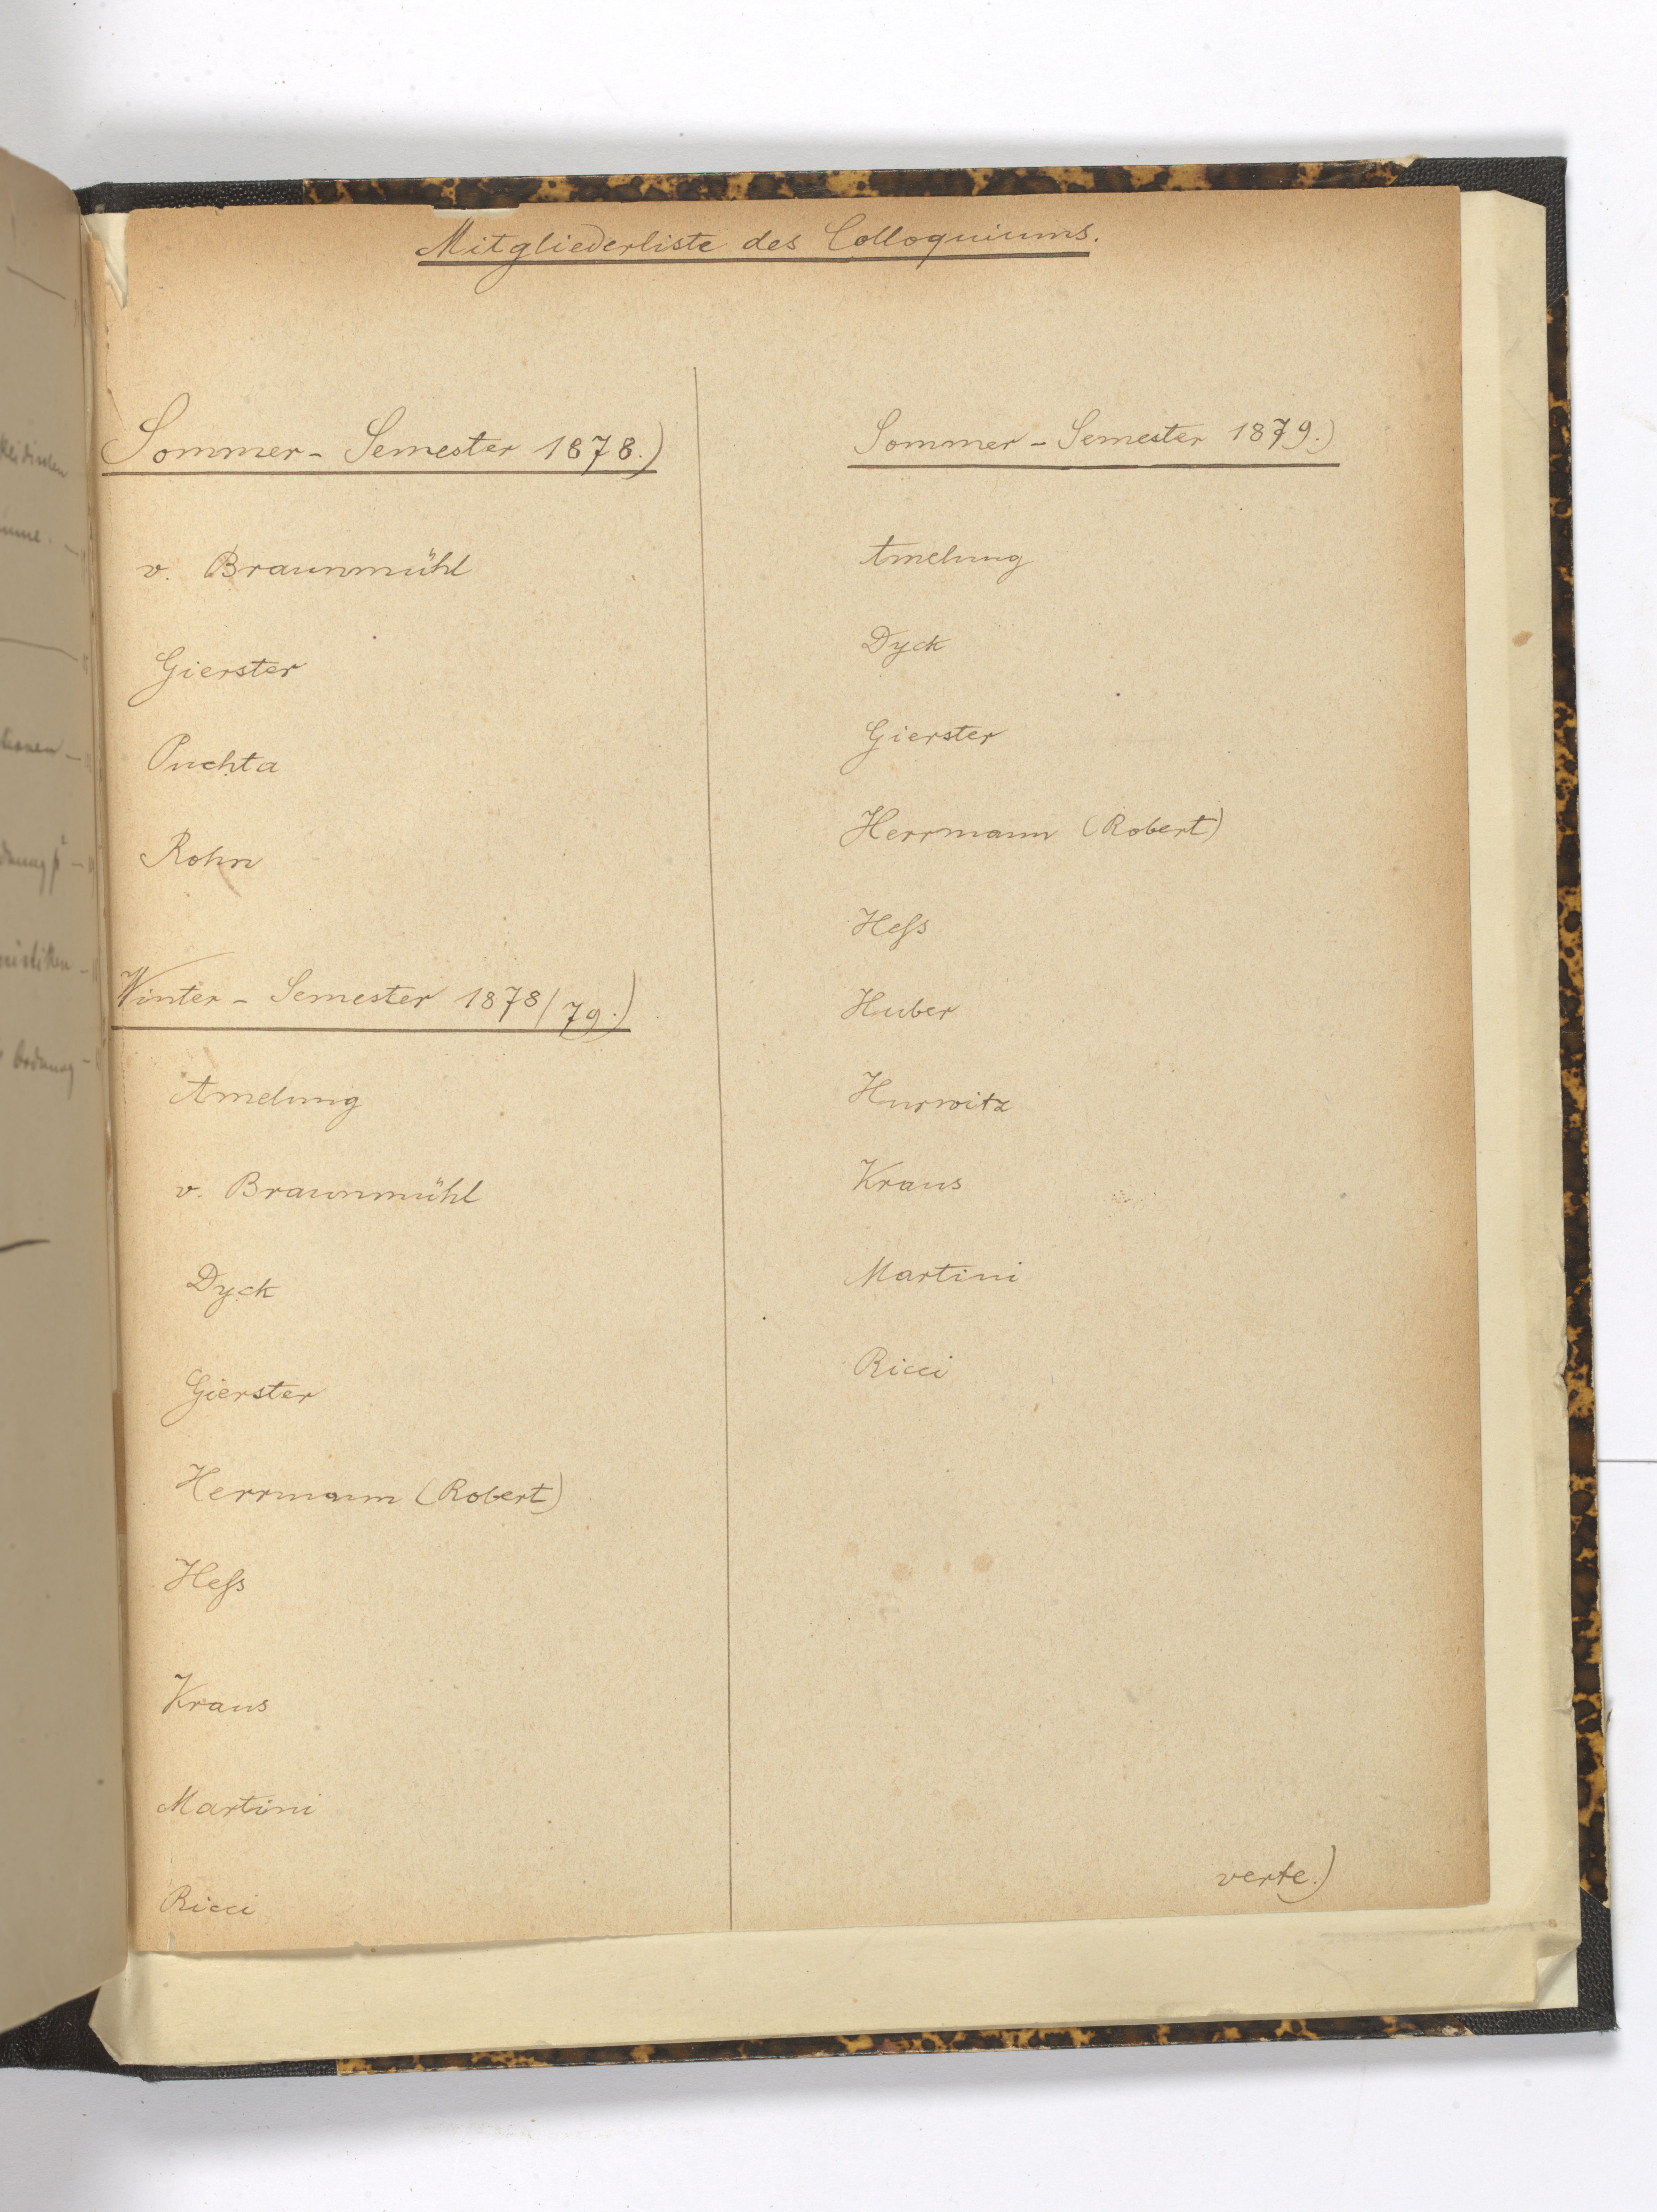 Mitgliederliste des Colloquiums.
Sommer-Semester 1878.)
v. Braunmühl
Gierster
Puchta
Rohn
Winter-Semester 1878/79.)
Amelung
v. Braunmühl
Dyck
Gierster
Herrmann (Robert)
Heſs
Kraus
Martini
Ricci
Sommer-Semester 1879.)
Amelung
Dyck
Gierster
Herrmann (Robert)
Heſs
Huber
Hurwitz
Kraus
Martini
Ricci
verte.)